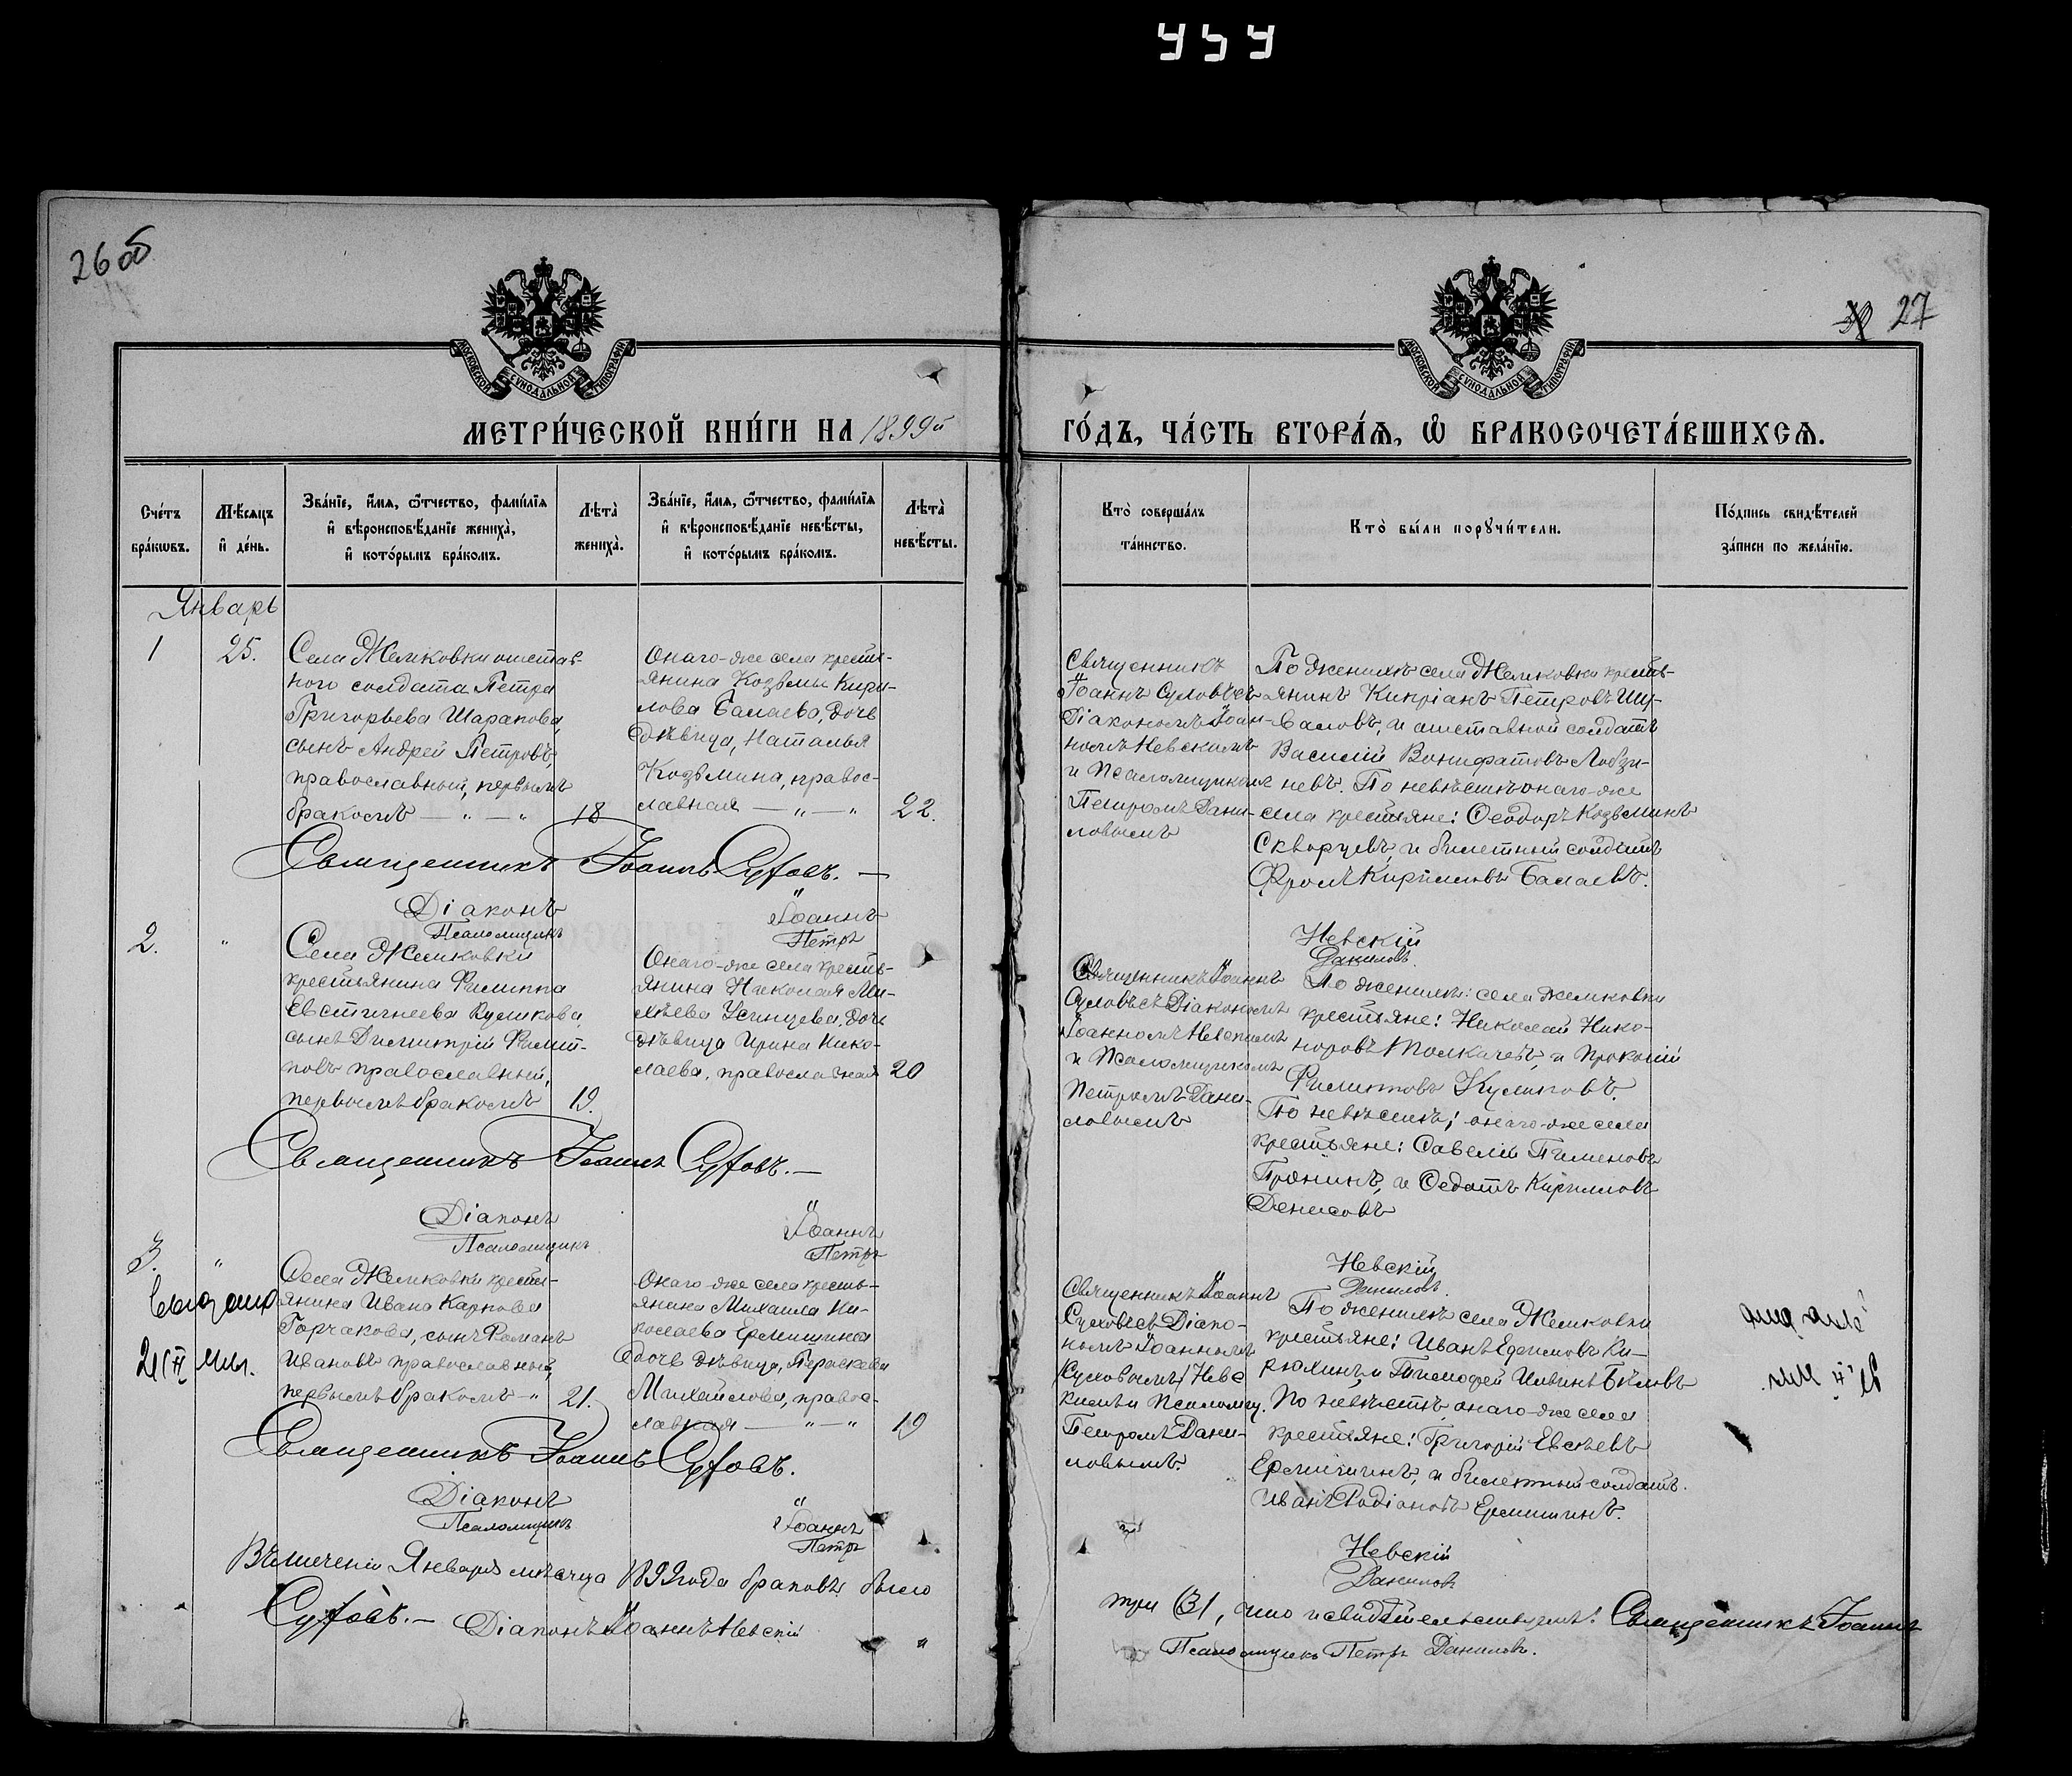 26 об
27
МОСКОВСКОЙ СѴНОДАЛЬНОЙ ТИПОГРАФІИ
МОСКОВСКОЙ СѴНОДАЛЬНОЙ ТИПОГРАФІИ
МЕТРИ́ЧЕСКОЙ КНИ́ГИ НА 1899й ГО́ДЪ, ЧА́СТЬ ВТОРА́Я, Ѡ БРАКОСОЧЕТА́ВШИХСЯ.
Сче́тъ бра́кѡвъ.
Мѣ́сяцъ и҆ де́нь.
Зва́нїе, и҆́мя, ѻ҆́тчество, фамилїя
и҆ вѣроисповѣ́данїе жениха̀,
и҆ кото́рымъ бра́комъ.
Лѣта̀ жениха̀.
Зва́нїе, и҆́мя, ѻ҆́тчество, фамилїя
и҆ вѣроисповѣ́данїе невѣ́сты,
и҆ кото́рымъ бра́комъ.
Лѣта̀ невѣ́сты.
Кто̀ соверша́лъ та́инство.
Кто̀ бы́ли порꙋчи́тели.
По́дпись свидѣ́телей
за́писи по жела́нїю.
Январь
1
25.
Села Жемковки отстав-
ного солдата Петра
Григорьева Шарапова,
сынъ Андрей Петровъ,
православный, первымъ
бракомъ — „ — „
18
Онаго-же села кресть-
янина Козьмы Кири-
лова Балаева, дочь
дѣвица, Наталья
Козьмина, правос-
лавная — „ — „
22.
Священникъ
Іоаннъ Суховъ съ
Діакономъ Іоан-
номъ Невскимъ
и Псаломщикомъ
Петромъ Дани-
ловымъ
По женихѣ села Жемковки кресть-
янинъ Кипріанъ Петровъ Шу-
валовъ, и отставной солдатъ
Василій Вонифатовъ Лобзи-
невъ. По невѣстѣ онаго-же
села крестьяне: Ѳеодоръ Козьминъ
Скворцевъ, и билетный солдатъ
Фролъ Кириловъ Балаевъ.
Священникъ Іоаннъ Суховъ. —
Діаконъ Іоаннъ Невскій
Псаломщикъ Петръ Даниловъ.
2.
„
Села Жемковки
крестьянина Филиппа
Евстигнеева Куликова,
сынъ Димитрій Филип-
повъ православный,
первымъ бракомъ
19.
Онаго-же села кресть-
янина Николая Ми-
хѣева Усинцева, дочь
дѣвица Ирина Нико-
лаева, православная
20
Священникъ Іоаннъ
Суховъ съ Діакономъ
Іоанномъ Невскимъ
и Псаломщикомъ
Петромъ Дани-
ловымъ
По женихѣ: села Жемковки
крестьяне: Николай Нико-
норовъ Толкачевъ, и Прокопій
Филиповъ Куликовъ.
По невѣстѣ; онаго-же села
крестьяне: Савелій Пименовъ
Пронинъ, и Ѳедотъ Кириловъ
Денисовъ
Священникъ Іоаннъ Суховъ. —
Діаконъ Іоаннъ Невскій
Псаломщикъ Петръ Даниловъ.
3.
„
Села Жемковки кресть-
янина Ивана Карпова
Горчакова, сынъ Романъ
Ивановъ православный,
первымъ бракомъ — „
21.
Онаго-же села кресть-
янина Михаила Ни-
колаева Еремишина
дочь дѣвица, Параскева
Михайлова, правос-
лавная — „ — „
19
Священникъ Іоаннъ
Суховъ съ Діако-
номъ Іоанномъ
Суховымъ/ Невс
кимъ и Псаломщ.
Петромъ Дани-
ловымъ.
По женихѣ села Жемковки
крестьяне: Иванъ Ефимовъ Ки-
рюхинъ, и Тимофей Ильинъ Бѣловъ
По невѣстѣ, онаго-же села
крестьяне: Григорій Евсѣевъ
Еремишинъ, и билетный солдатъ.
Иванъ Родіоновъ Еремишинъ.
Священникъ Іоаннъ Суховъ.
Діаконъ Іоаннъ Невскій
Псаломщикъ Петръ Даниловъ
Въ теченіи Января мѣсяца 1899 года браковъ было три (3), что и свидѣтельствуемъ: Священникъ Іоаннъ
Суховъ. — Діаконъ Іоаннъ Невскій
Псаломщикъ Петръ Даниловъ.